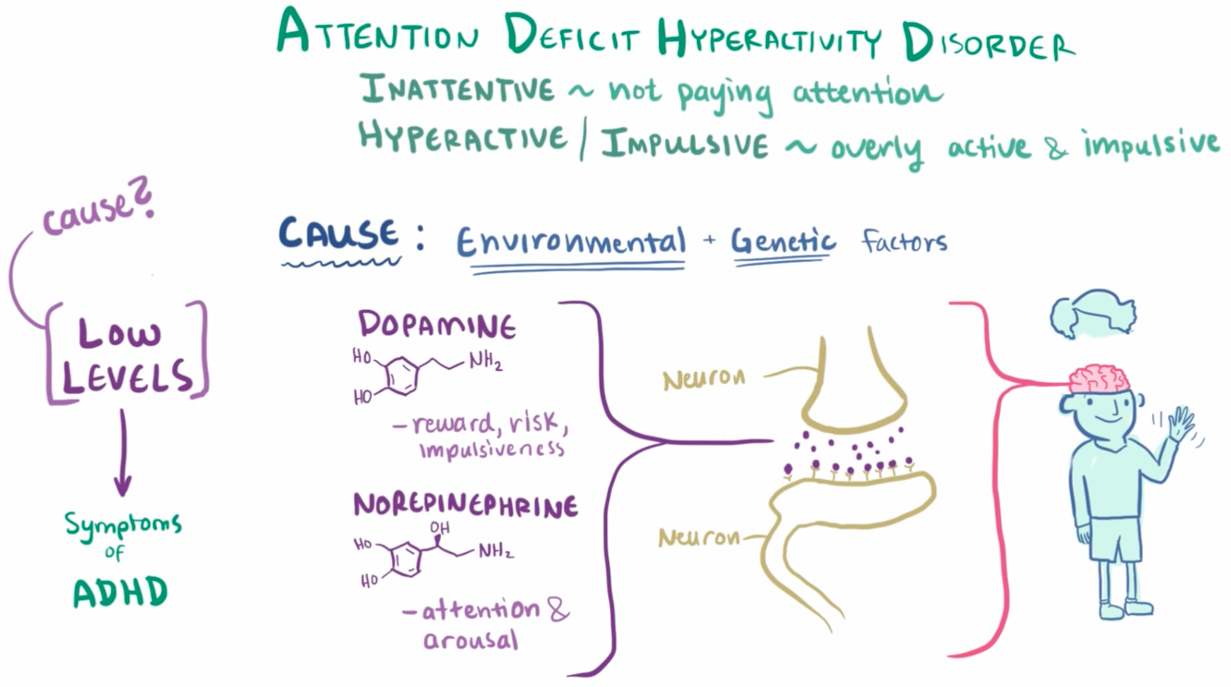 ATTENTION DEFICIT HYPERACTIVITY DISORDER
INATTENTIVE ~ not paying attention
HYPERACTIVE / IMPULSIVE ~ overly active & impulsive
cause?
CAUSE: Environmental + Genetic factors
LOW
LEVELS
Symptoms
OF
ADHD
DOPAMINE
HO
NH2
HO
- reward, risk,
impulsiveness
NOREPINEPHRINE
OH
HO
NH2
HO
- attention &
arousal
Neuron
Neuron